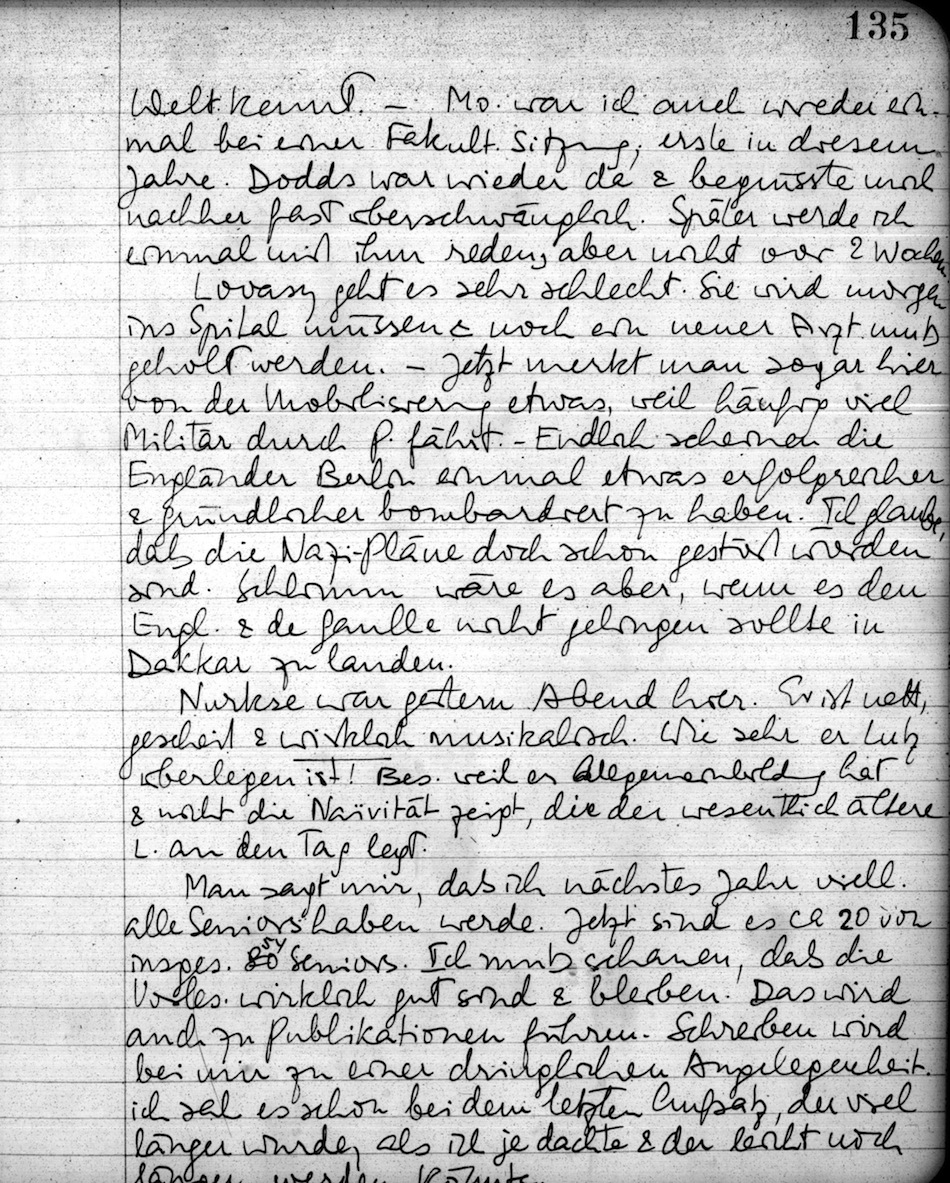 135
Welt kennt. – Mo. war ich auch wieder ein-
mal bei einer Fakult. Sitzung; erste in diesem
Jahre. Dodds war wieder da & begrüsste mich
nachher fast überschwänglich. Später werde ich
einmal mit ihm reden, aber nicht vor 2 Wochen
Lovasy geht es sehr schlecht. Sie wird morgen
ins Spital müssen & noch ein neuer Arzt muß
geholt werden. – Jetzt merkt man sogar hier
von der Mobilisierung etwas, weil häufig viel
Militär durch P. fährt. – Endlich scheinen die
Engländer Berlin einmal etwas erfolgreicher
& gründlicher bombardiert zu haben. Ich glaube,
daß die Nazi-Pläne doch schon gestört worden
sind. Schlimm wäre es aber, wenn es den
Engl. & de Gaulle nicht gelingen sollte in
Dakkar zu landen.
Nurkse war gestern Abend hier. Er ist nett,
gescheit & wirklich musikalisch. Wie sehr er Lutz
überlegen ist! Bes. weil er Allgemeinbildung hat
& nicht die Naivität zeigt, die der wesentlich ältere
L. an den Tag legt.
Man sagt mir, daß ich nächstes Jahr viell.
alle Seniors haben werde. Jetzt sind es ca 20 von
insges. Seniors. Ich muß schauen, daß die
Vorles. wirklich gut sind & bleiben. Das wird
auch zu Publikationen führen. Schreiben wird
bei mir zu einer dringlichen Angelegenheit.
ich sah es schon bei dem letzten Aufsatz, der viel
länger wurde, als ich je dachte & der leicht noch
länger werden könnte.